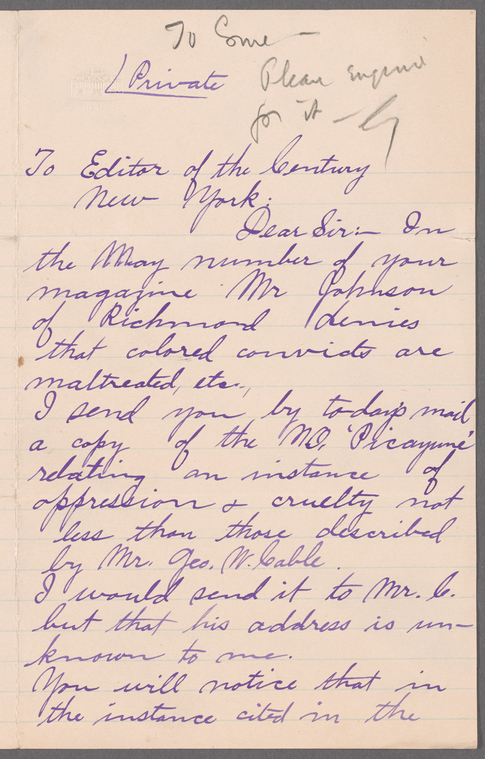 To Come
(Private
Please
for it
To Editor of the Century
New York:
Dear Sir:- In
the May number of your
magazine Mr Johnson
of Richmond denies
that colored convicts are
maltreated, etc.,
I send you by to-day's mail
a copy of the N.O. 'Picayune'
relating an instance of
oppression & cruelty not
less than those described
by Mr. Geo. W. Cable.
I would send it to Mr. C.
but that his address is un-
known to me.
You will notice that in
the instance cited in the